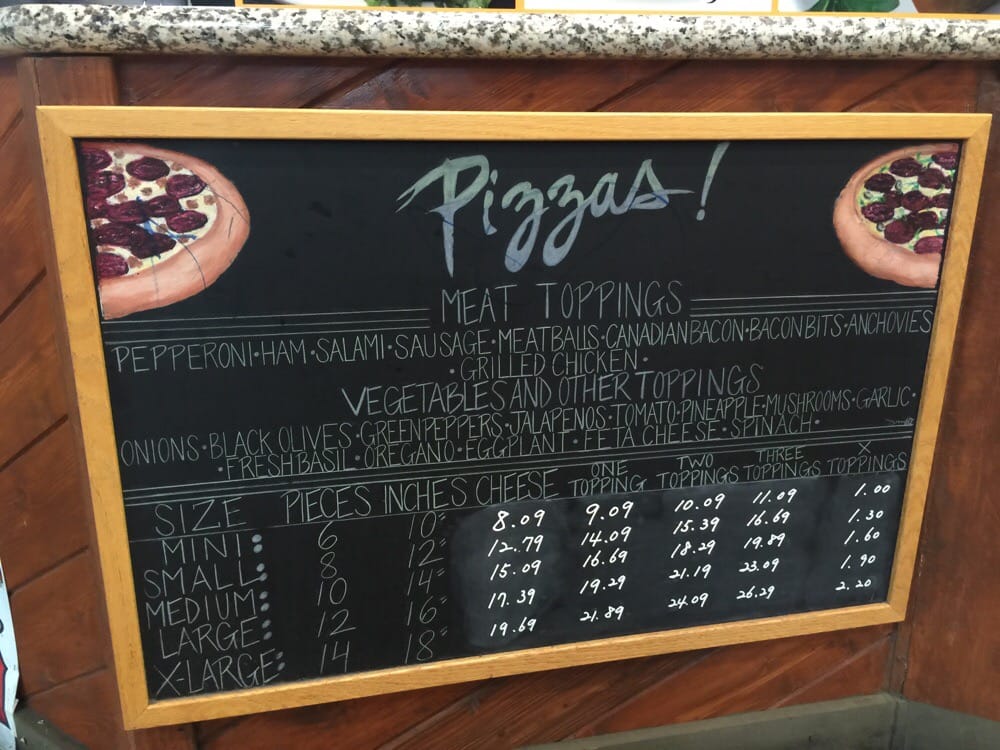 Pizzas!
MEAT TOPPINGS
PEPPERONI • HAM • SALAMI • SAUSAGE • MEATBALLS • CANADIAN BACON • BACON BITS • ANCHOVIES
• GRILLED CHICKEN •
VEGETABLES AND OTHER TOPPINGS
ONIONS • BLACK OLIVES • GREEN PEPPERS • JALAPENOS • TOMATO • PINEAPPLE • MUSHROOMS • GARLIC •
• FRESH BASIL • OREGANO • EGGPLANT • FETA CHEESE • SPINACH •
SIZE PIECES INCHES CHEESE ONE TOPPING TWO TOPPINGS THREE TOPPINGS X TOPPINGS
MINI: 6 10" 8.09 9.09 10.09 11.09 1.00
SMALL: 8 12" 12.79 14.09 15.39 16.69 1.30
MEDIUM: 10 14" 15.09 16.69 18.29 19.89 1.60
LARGE: 12 16" 17.39 19.29 21.19 23.09 1.90
X-LARGE: 14 18" 19.69 21.89 24.09 26.29 2.20